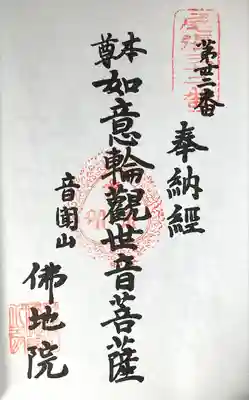 第廿二番
奉納經
本尊
如意輪觀世音菩薩
音圍山
佛地院